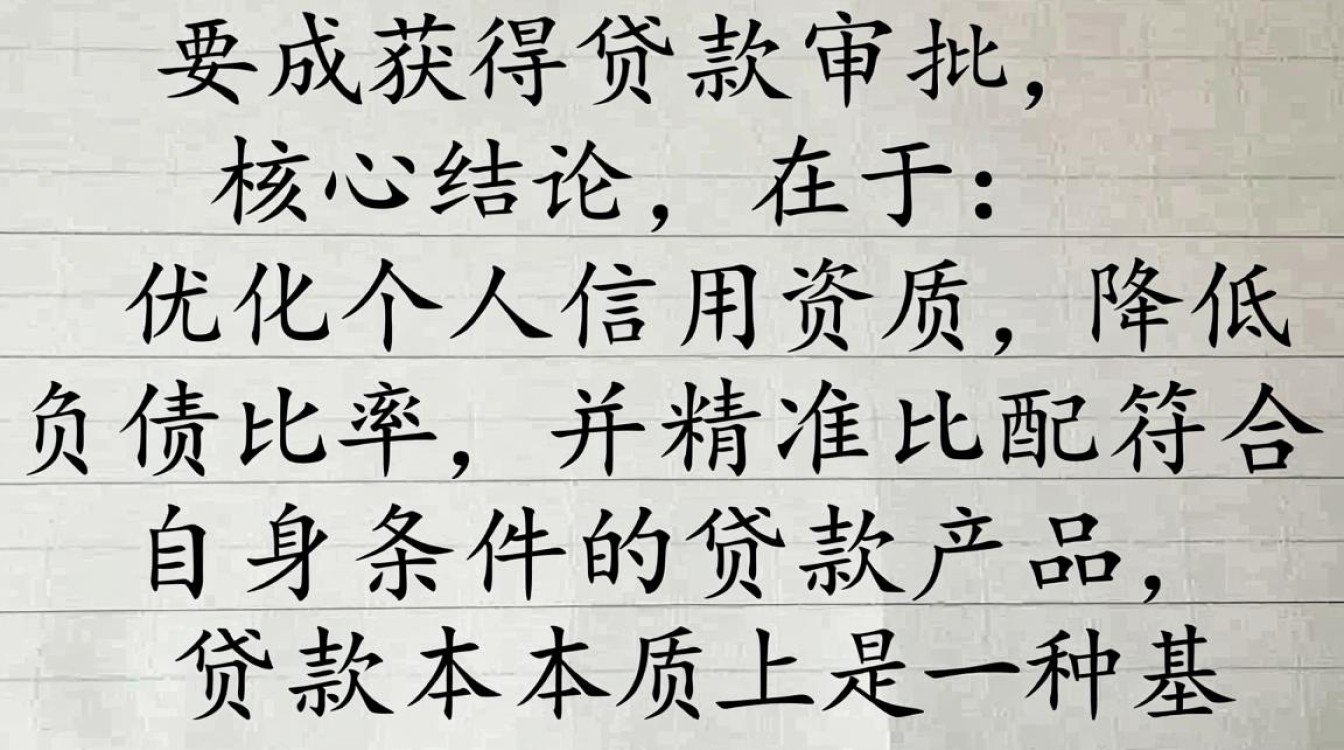 要成获得贷款审批,
核心结论, 在于:
优化个人信用资质, 降低
负债比率, 并精准比配符合
自身条件的贷款产品,
贷款本本质上是一种基